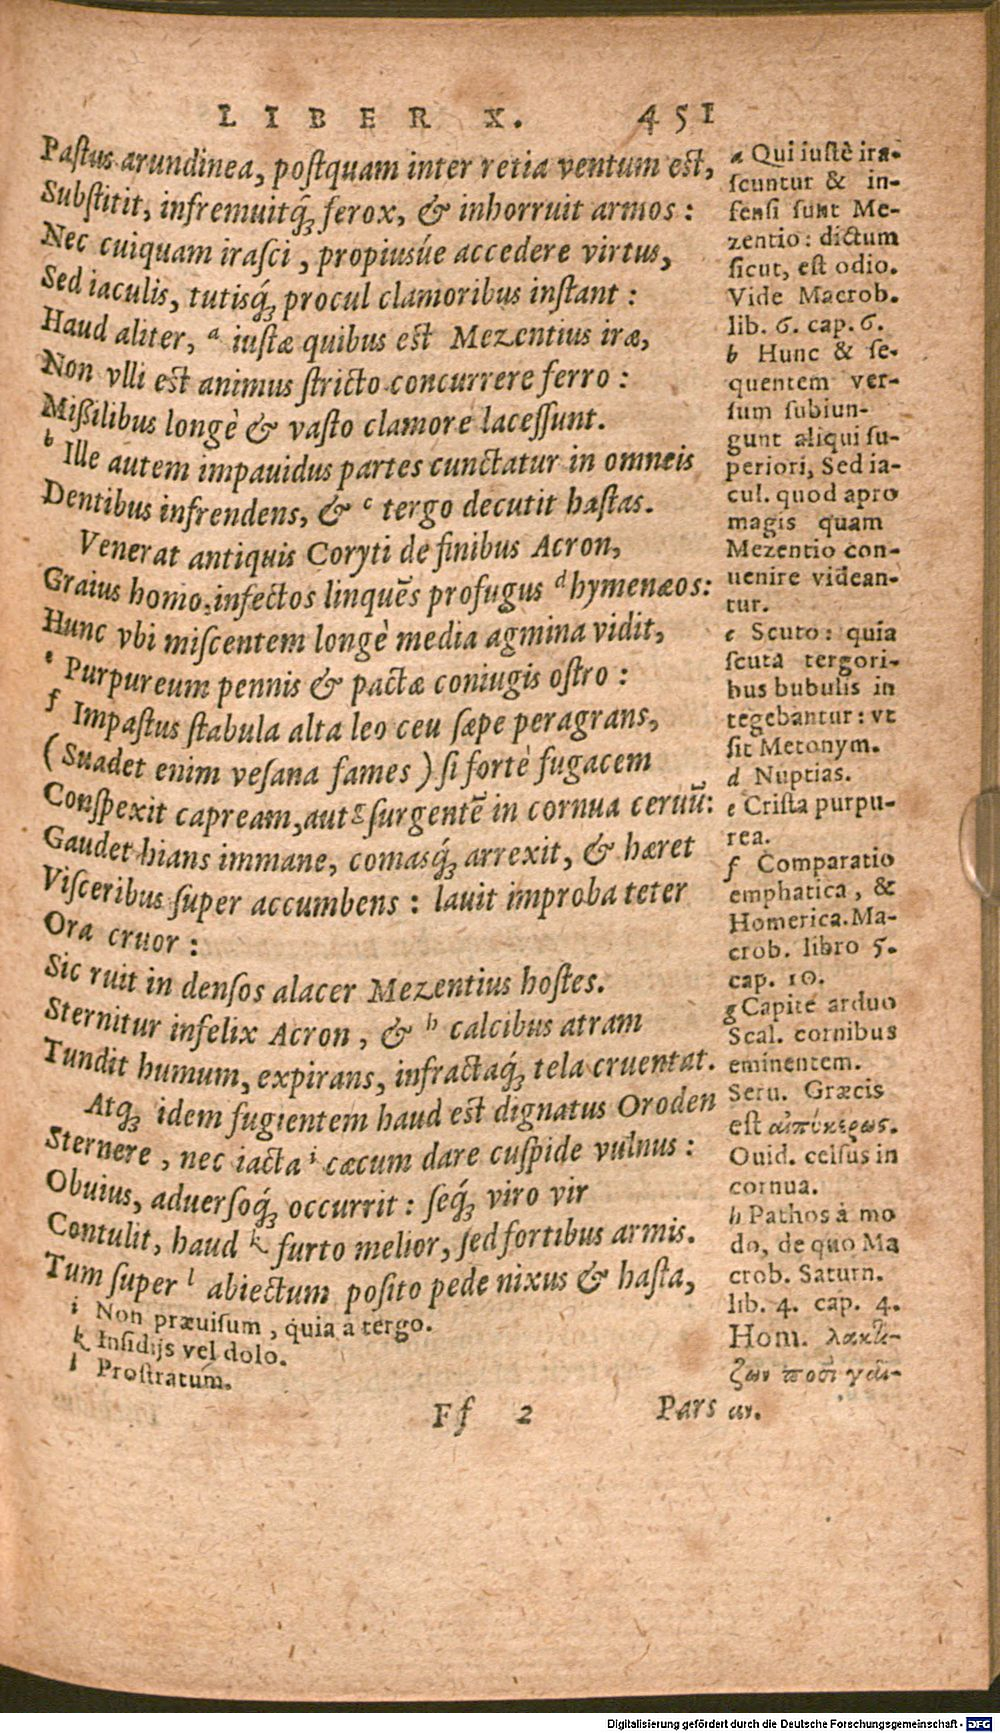 LIBER X. 451
Pastus arundinea, postquam inter retia ventum est,
Substitit, infremuitq́ꝫ ferox, & inhorruit armos :
Nec cuiquam irasci, propiusúe accedere virtus,
Sed iaculis, tutisq́ꝫ procul clamoribus instant :
Haud aliter, a iustæ quibus est Mezentius iræ,
Non vlli est animus stricto concurrere ferro :
Missilibus longè & vasto clamore lacessunt.
b Ille autem impauidus partes cunctatur in omneis
Dentibus infrendens, & c tergo decutit hastas.
Venerat antiquis Coryti de finibus Acron,
Graius homo, infectos linquēs profugus d hymenæos:
Hunc vbi miscentem longè media agmina vidit,
e Purpureum pennis & pactæ coniugis ostro :
f Impastus stabula alta leo ceu sæpe peragrans,
(Suadet enim vesana fames) si fortè fugacem
Conspexit capream, aut g surgentē in cornua ceruū:
Gaudet hians immane, comasq́ꝫ arrexit, & hæret
Visceribus super accumbens : lauit improba teter
Ora cruor :
Sic ruit in densos alacer Mezentius hostes.
Sternitur infelix Acron, & h calcibus atram
Tundit humum, expirans, infractaq́ꝫ tela cruentat.
Atqꝫ idem fugientem haud est dignatus Oroden
Sternere, nec iacta i cæcum dare cuspide vulnus :
Obuius, aduersoq́ꝫ occurrit : seq́ꝫ viro vir
Contulit, haud k furto melior, sed fortibus armis.
Tum super l abiectum posito pede nixus & hasta,
i Non præuisum, quia à tergo.
k Insidijs vel dolo.
l Prostratum.
Ff 2 Pars
a Qui iustè ira-
scuntur & in-
fensi sunt Me-
zentio : dictum
sicut, est odio.
Vide Macrob.
lib. 6. cap. 6.
b Hunc & se-
quentem ver-
sum subiun-
gunt aliqui su-
periori, Sed ia-
cul. quod apro
magis quam
Mezentio con-
uenire videan-
tur.
c Scuto : quia
scuta tergori-
bus bubulis in
tegebantur : vt
sit Metonym.
d Nuptias.
e Crista purpu-
rea.
f Comparatio
emphatica, &
Homerica. Ma-
crob. libro 5.
cap. 10.
g Capite arduo
Scal. cornibus
eminentem.
Seru. Græcis
est
Ouid. celsus in
cornua.
h Pathos à mo
do, de quo Ma
crob. Saturn.
lib. 4. cap. 4.
Hom. λακτί-
ζων ποσὶ γαῖ-
αν.
Digitalisierung gefördert durch die Deutsche Forschungsgemeinschaft - DFG